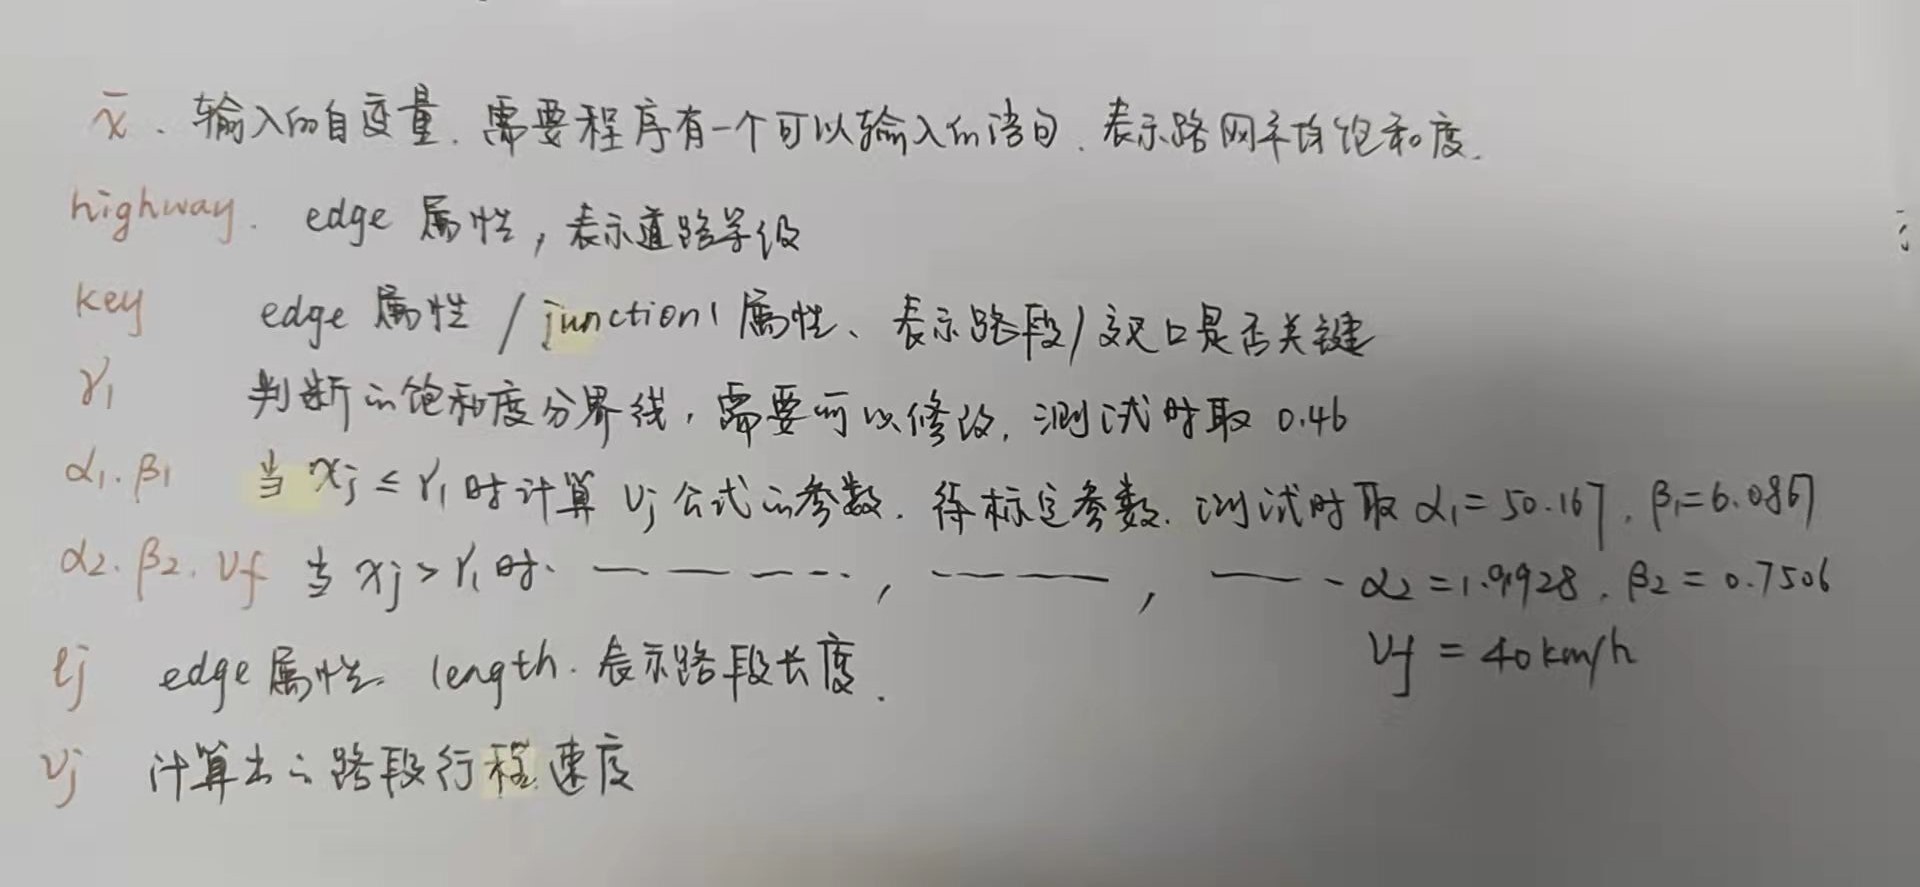 x̄、输入的自变量. 需要程序有一个可以输入的语句. 表示路网平均饱和度.
highway. edge 属性, 表示道路等级
key edge 属性 / junction1 属性、表示路段/交叉口是否关键
γ₁ 判断的饱和度分界线, 需要可以修改, 测试时取 0.46
α₁. β₁ 当 xj ≤ γ₁ 时计算 vj 公式的参数. 待标定参数. 测试时取 α₁ = 50.167, β₁ = 6.0867
α₂. β₂. vf 当 xj > γ₁ 时. — — — —, — — —, — — - α₂ = 1.9928, β₂ = 0.7506
vf = 40 km/h
lj edge 属性. length. 表示路段长度.
vj 计算出的路段行程速度